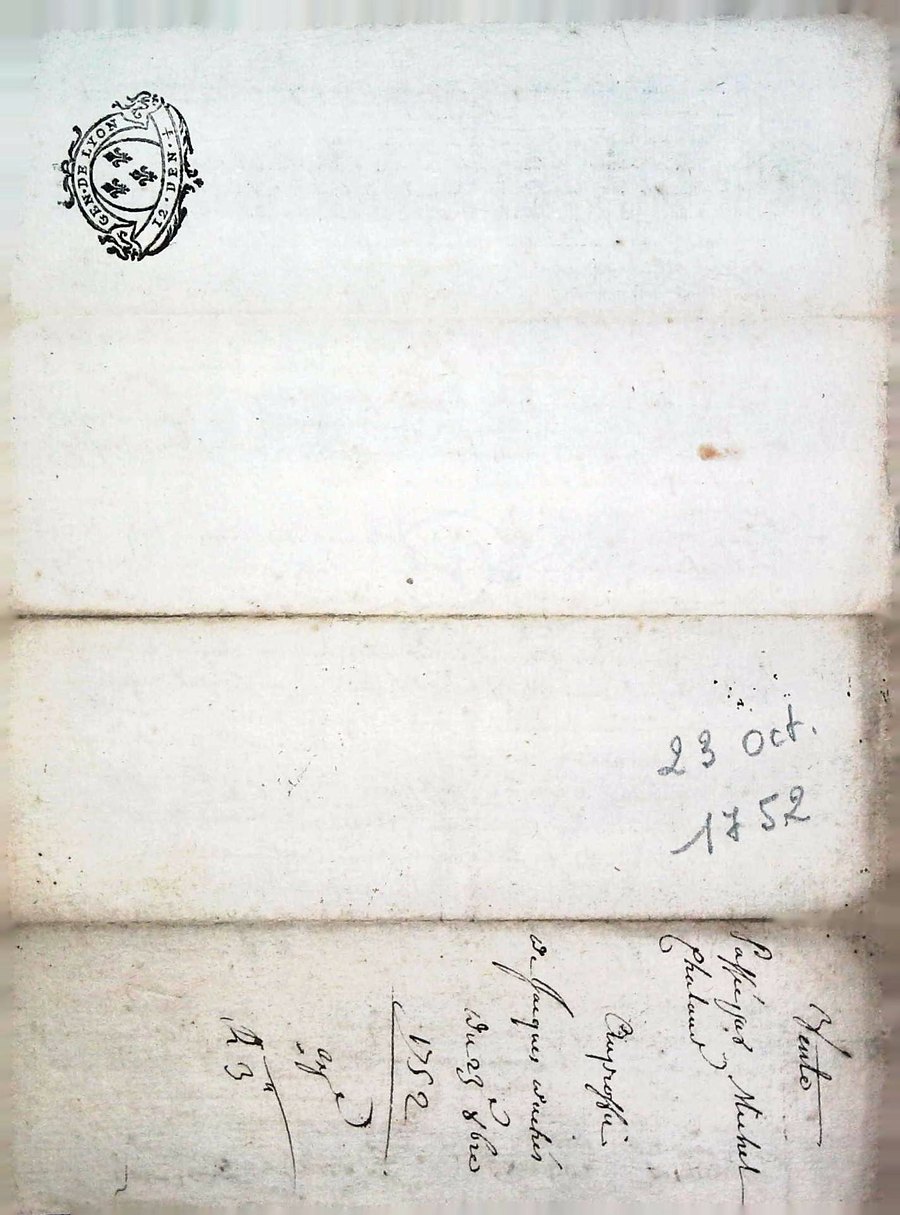 GEN · DE LYON
12 · DEN · 4 ·
23 oct.
1752
Vente
Passée par Michel
Chaland
Au proffit
De Jacques
Du 23 8bre
1752